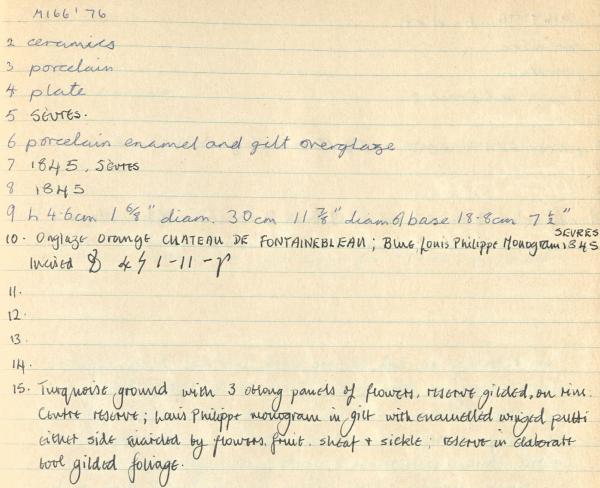 M166'76
2 ceramics
3 porcelain
4 plate
5 SÈVRES.
6 porcelain enamel and gilt overglaze
7 1845, SÈVRES
8 1845
9 h 4.6cm 1 6/8" diam. 30cm 11 7/8" diam of base 18.8cm 7 1/2"
10. Onglaze Orange CHATEAU DE FONTAINEBLEAU; Blue, Louis Philippe Monogram SEVRES 1845
Incised 4 1-11-
11.
12.
13.
14.
15. Turquoise ground with 3 oblong panels of flowers, reserve gilded, on rim.
Centre reserve; Louis Philippe monogram in gilt with enamelled winged putti
either side encircled by flowers, fruit, sheaf + sickle; reserve in elaborate
tool gilded foliage.